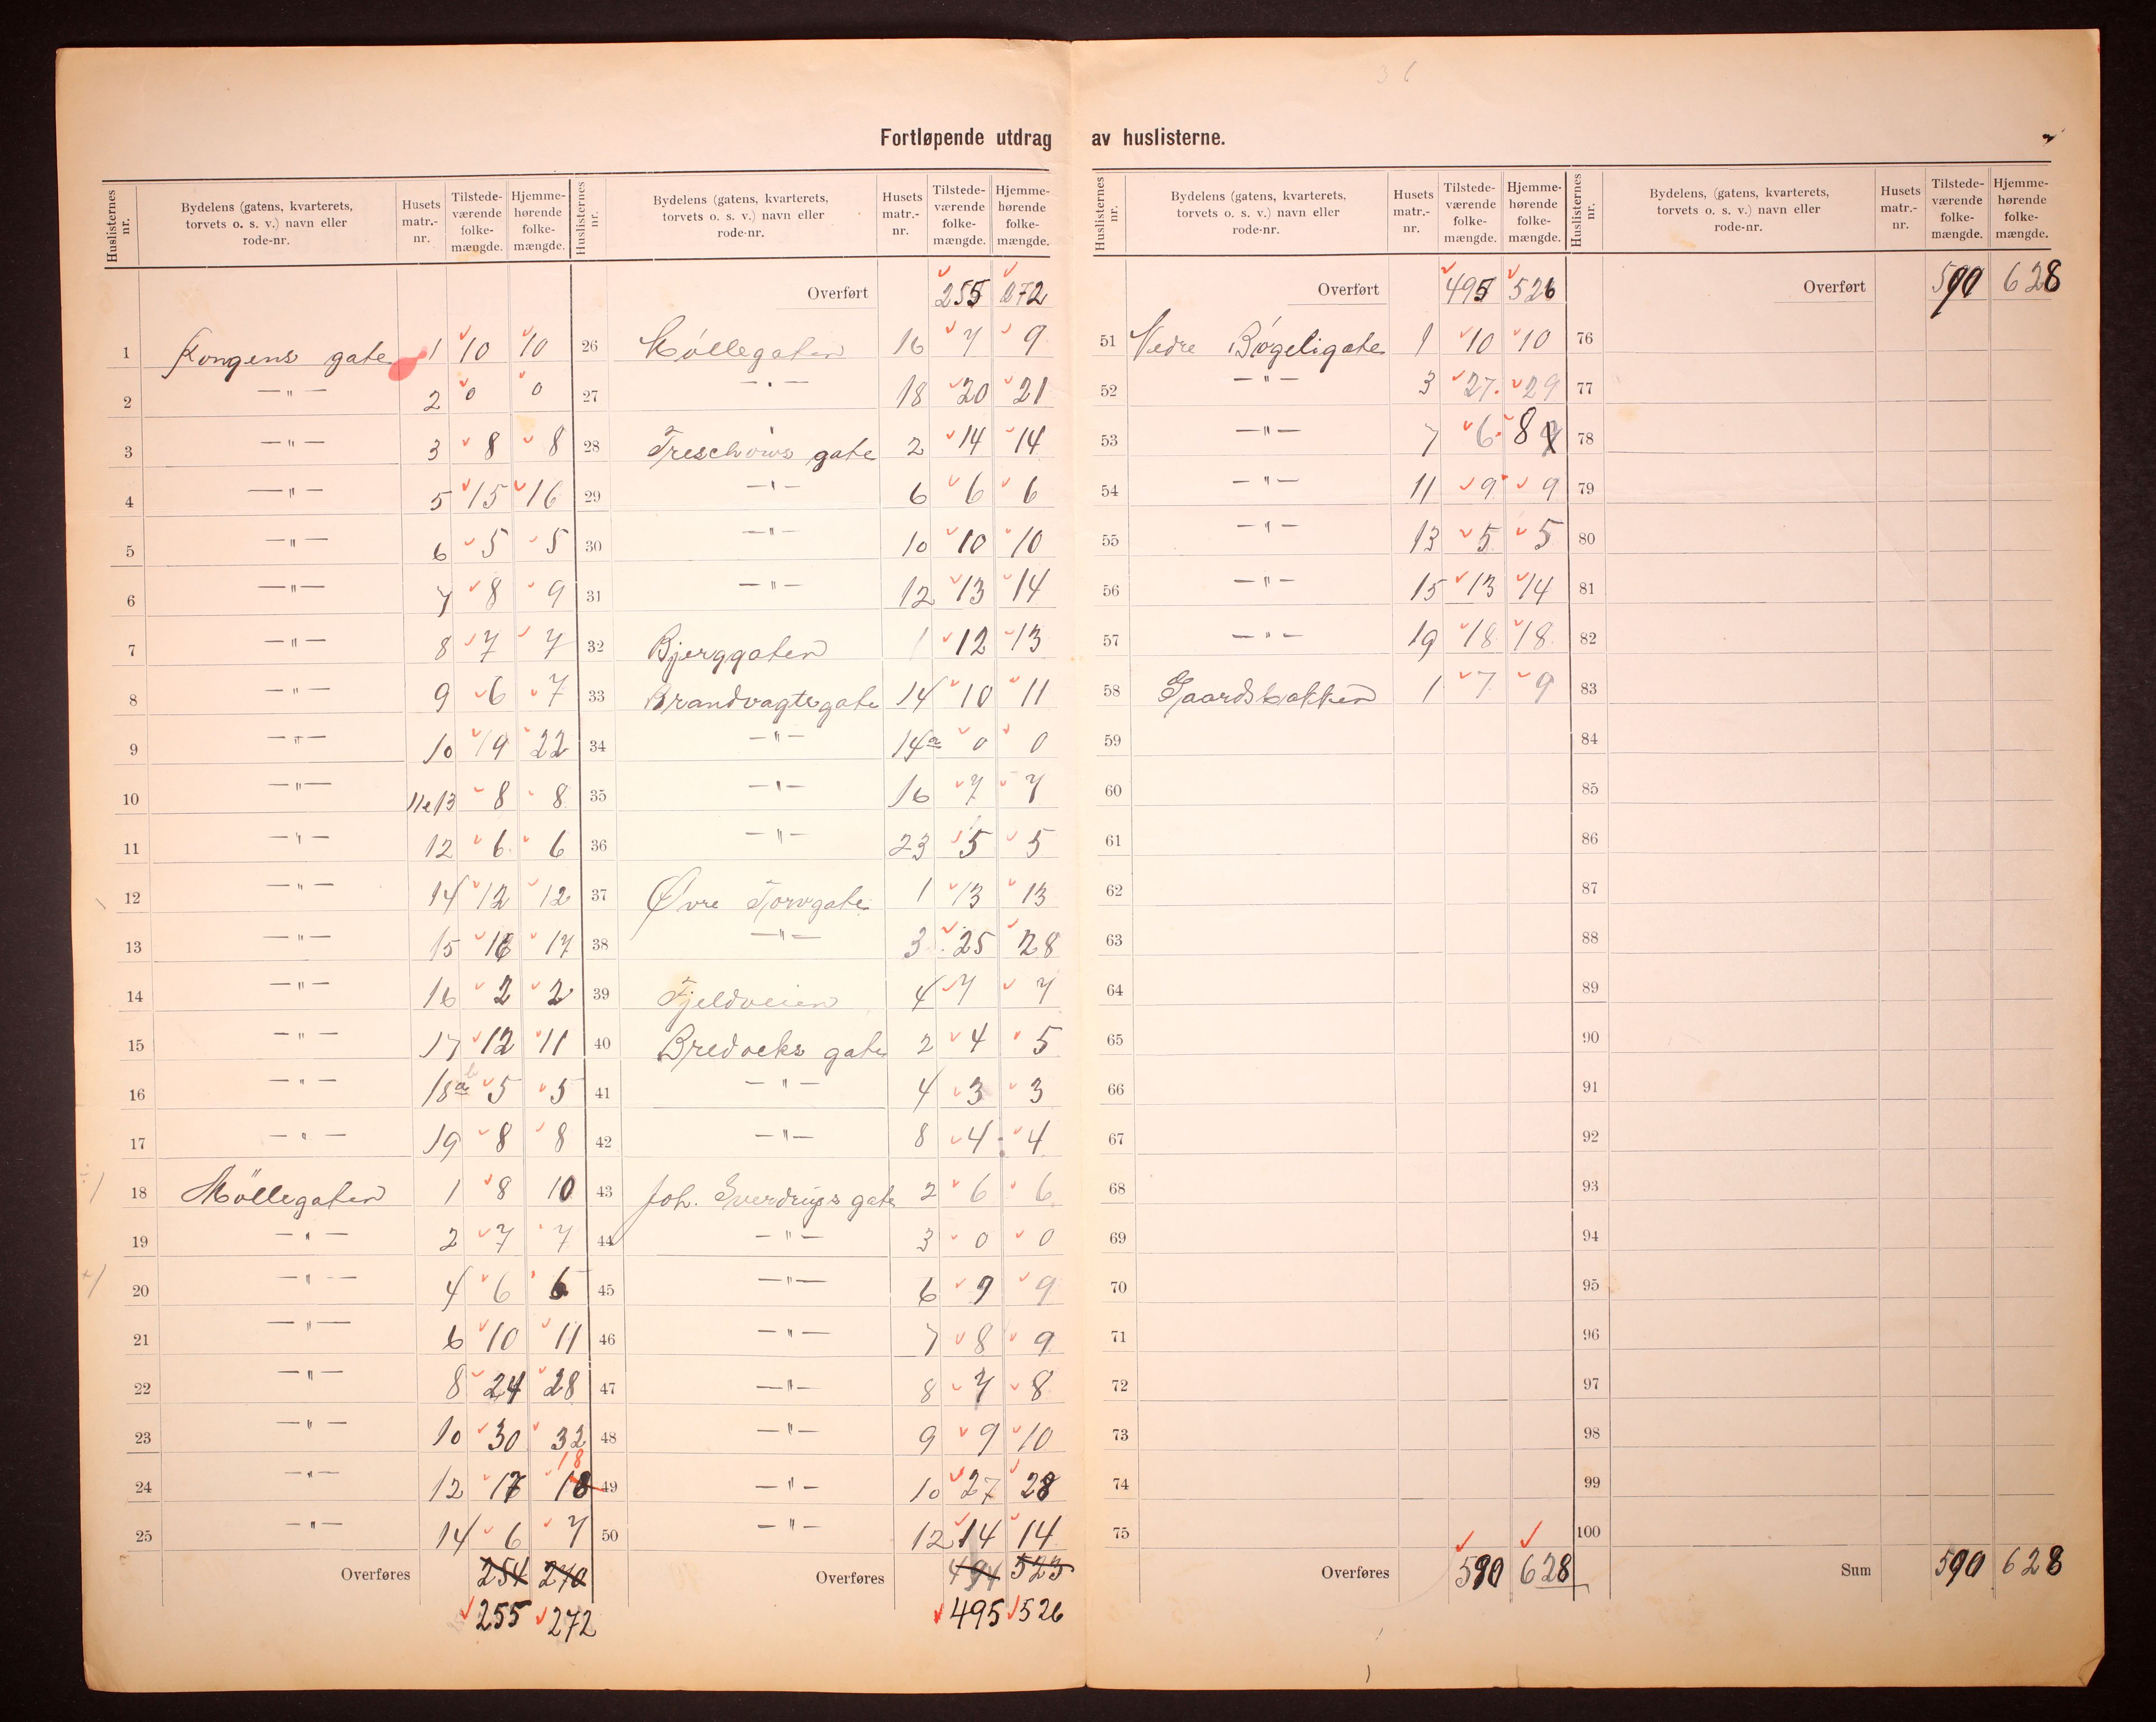 36
Fortløpende utdrag av huslisterne.
Huslisternes nr. | Bydelens (gatens, kvarterets, torvets o. s. v.) navn eller rode-nr. | Husets matr.-nr. | Tilstede-værende folke-mængde. | Hjemme-hørende folke-mængde.
1 Kongens gate 1 10 10
2 —"— 2 0 0
3 —"— 3 8 8
4 —"— 5 15 16
5 —"— 6 5 5
6 —"— 7 8 9
7 —"— 8 7 7
8 —"— 9 6 7
9 —"— 10 19 22
10 —"— 11e13 8 8
11 —"— 12 6 6
12 —"— 14 12 12
13 —"— 15 16 17
14 —"— 16 2 2
15 —"— 17 12 11
16 —"— 18a 5 5
17 —"— 19 8 8
18 Möllegaten 1 8 10
19 —"— 2 7 7
20 —"— 4 6 6
21 —"— 6 10 11
22 —"— 8 24 28
23 —"— 10 30 32
18
24 —"— 12 17 18
25 —"— 14 6 7
Overføres 254 270
255 272
Huslisternes nr. | Bydelens (gatens, kvarterets, torvets o. s. v.) navn eller rode-nr. | Husets matr.-nr. | Tilstede-værende folke-mængde. | Hjemme-hørende folke-mængde.
Overført 255 272
26 Möllegaten 16 7 9
27 —"— 18 20 21
28 Treschows gate 2 14 14
29 —"— 6 6 6
30 —"— 10 10 10
31 —"— 12 13 14
32 Bjerggaten 1 12 13
33 Brandvagtsgate 14 10 11
34 —"— 14a 0 0
35 —"— 16 7 7
36 —"— 23 5 5
37 Øvre Torvgate 1 13 13
38 —"— 3 25 28
39 Fjeldveien 4 7 7
40 Bredocks gate 2 4 5
41 —"— 4 3 3
42 —"— 8 4 4
43 Joh. Sverdrups gate 2 6 6
44 —"— 3 0 0
45 —"— 6 9 9
46 —"— 7 8 9
47 —"— 8 7 8
48 —"— 9 9 10
49 —"— 10 27 28
50 —"— 12 14 14
Overføres 494 523
495 526
Huslisternes nr. | Bydelens (gatens, kvarterets, torvets o. s. v.) navn eller rode-nr. | Husets matr.-nr. | Tilstede-værende folke-mængde. | Hjemme-hørende folke-mængde.
Overført 495 526
51 Nedre Bøgeligate 1 10 10
52 —"— 3 27 29
53 —"— 7 6 8
54 —"— 11 9 9
55 —"— 13 5 5
56 —"— 15 13 14
57 —"— 19 18 18
58 Gaardsbakken 1 7 9
59
60
61
62
63
64
65
66
67
68
69
70
71
72
73
74
75
Overføres 590 628
Huslisternes nr. | Bydelens, (gatens, kvarterets, torvets o. s. v.) navn eller rode-nr. | Husets matr.-nr. | Tilstede-værende folke-mængde. | Hjemme-hørende folke-mængde.
Overført 590 628
76
77
78
79
80
81
82
83
84
85
86
87
88
89
90
91
92
93
94
95
96
97
98
99
100
Sum 590 628